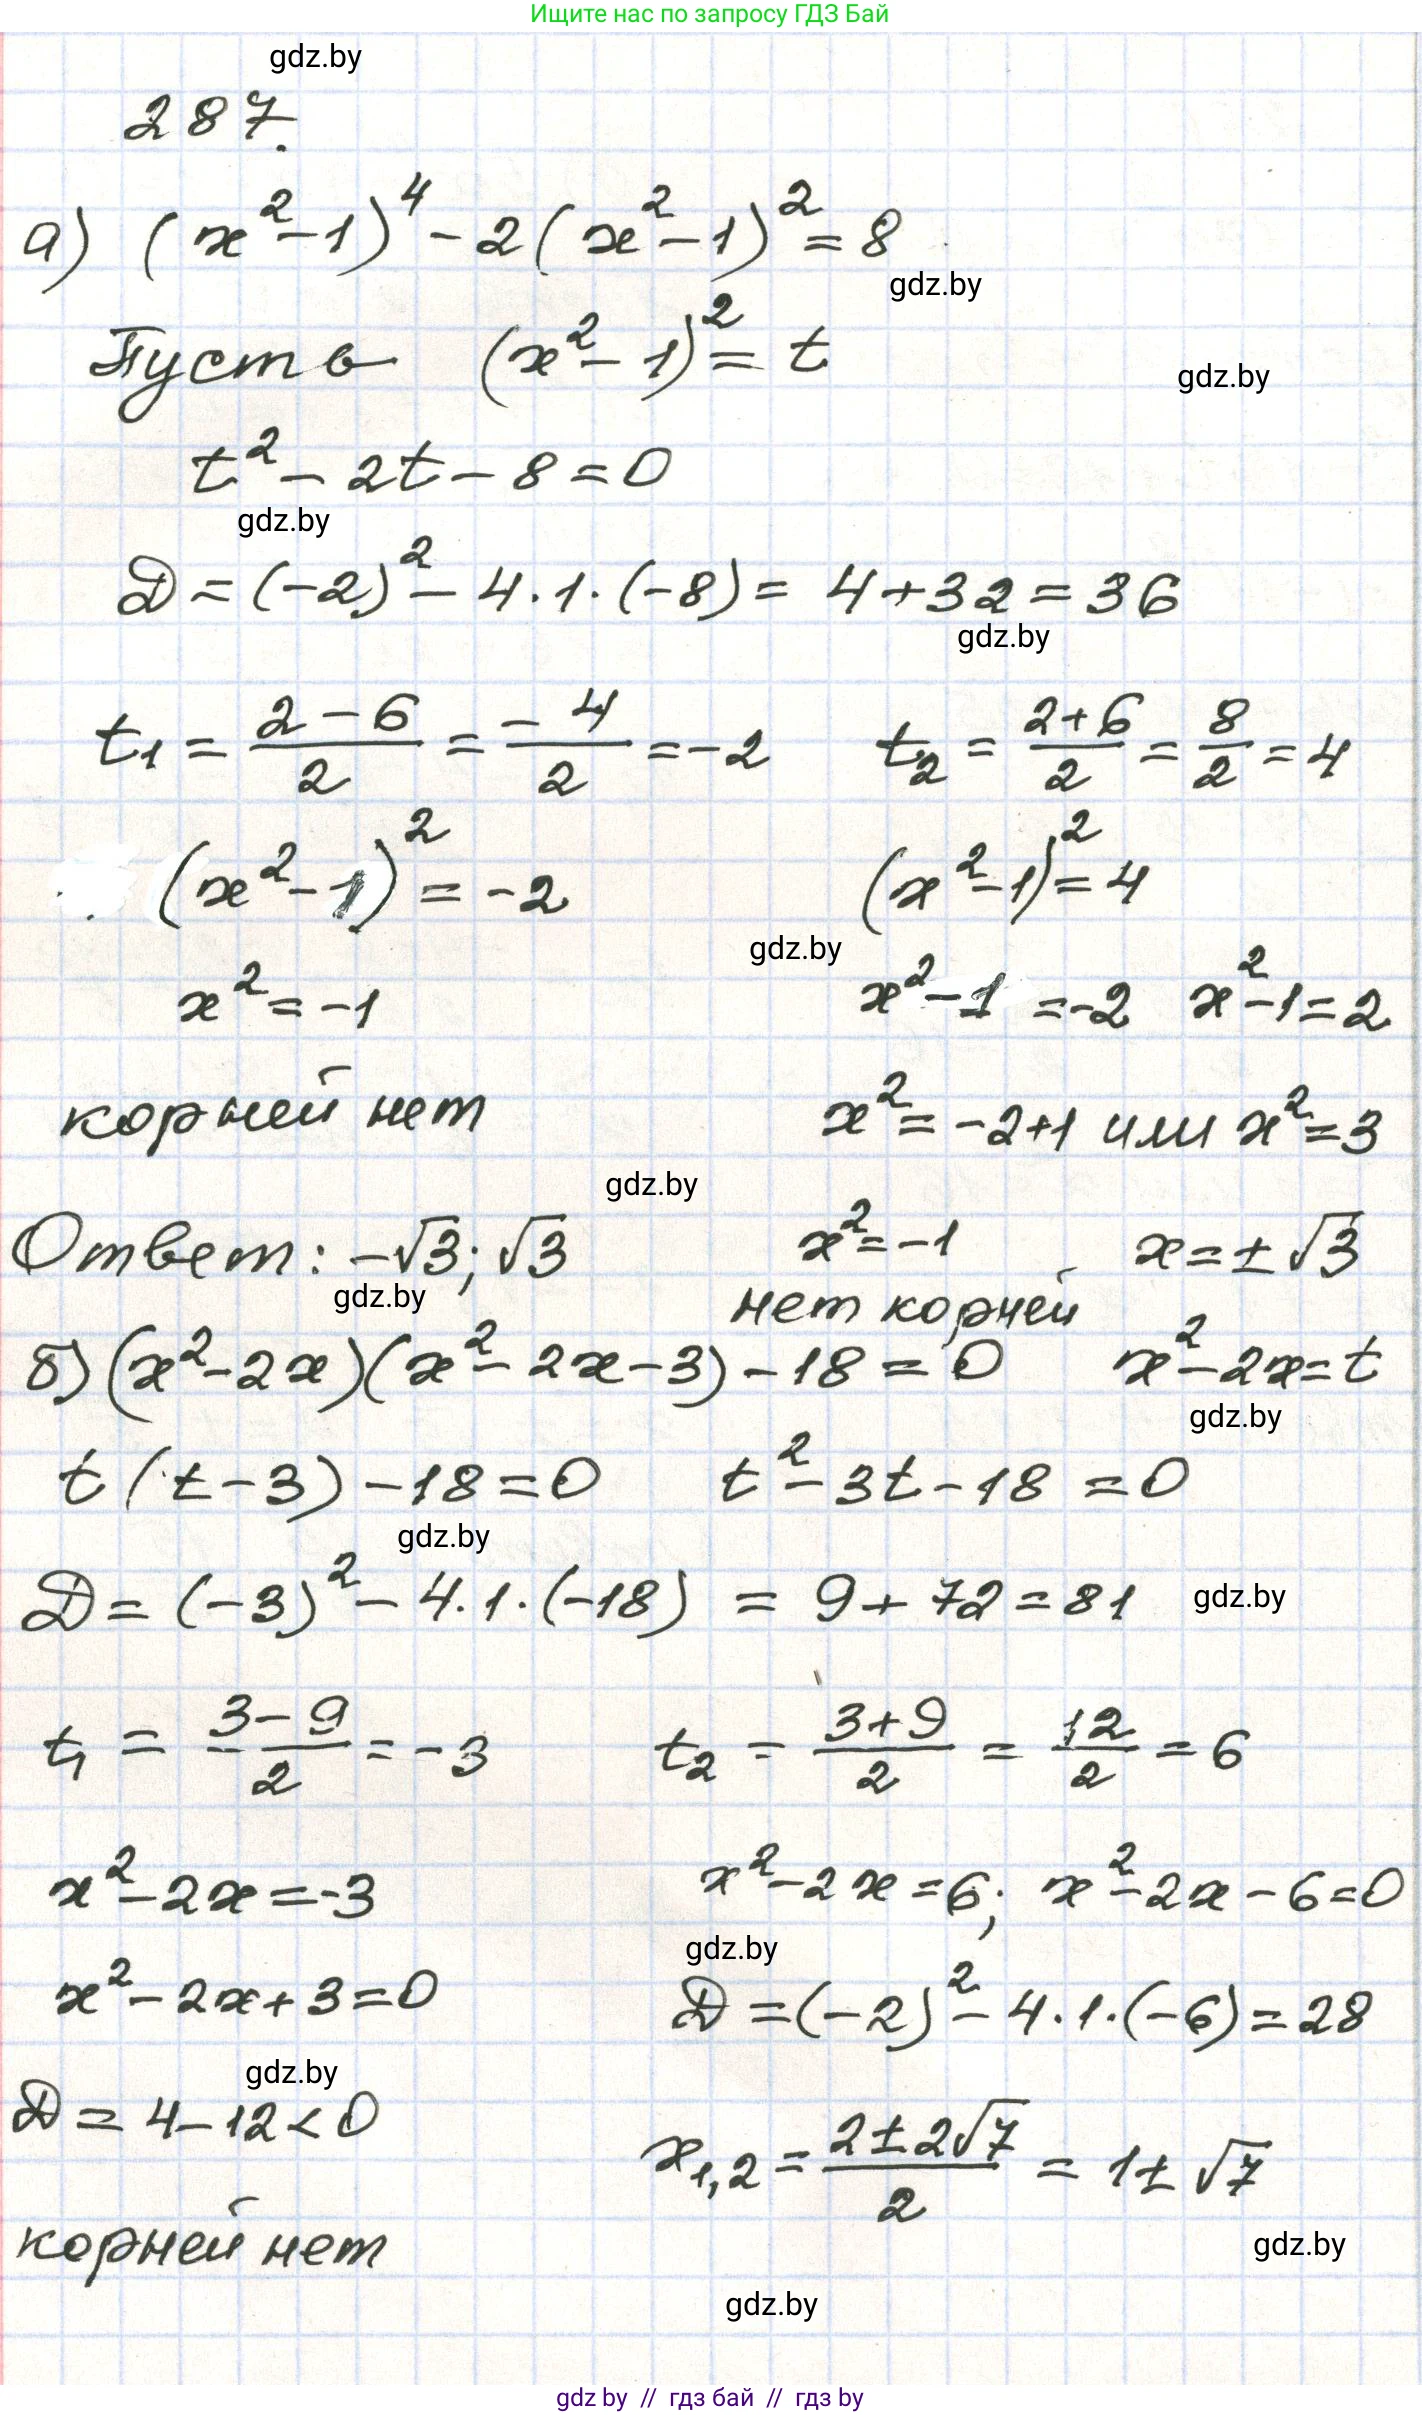 Ищите нас по запросу ГДЗ Бай
gdz.by
287.
а) (x²-1)⁴-2(x²-1)²=8
gdz.by
Пусть (x²-1)²=t
gdz.by
t²-2t-8=0
gdz.by
D=(-2)²-4·1·(-8)=4+32=36
gdz.by
t₁=\frac{2-6}{2}=\frac{-4}{2}=-2 t₂=\frac{2+6}{2}=\frac{8}{2}=4
(x²-1)²=-2 (x²-1)²=4
gdz.by
x²=-1 x²-1=-2 x²-1=2
корней нет x²=-2+1 или x²=3
gdz.by
Ответ: -√3; √3 x²=-1 x=±√3
gdz.by
нет корней
б) (x²-2x)(x²-2x-3)-18=0 x²-2x=t
gdz.by
t(t-3)-18=0 t²-3t-18=0
gdz.by
D=(-3)²-4·1·(-18)=9+72=81
gdz.by
t₁=\frac{3-9}{2}=-3 t₂=\frac{3+9}{2}=\frac{12}{2}=6
x²-2x=-3 x²-2x=6; x²-2x-6=0
gdz.by
x²-2x+3=0 D=(-2)²-4·1·(-6)=28
gdz.by
D=4-12<0 x₁,₂=\frac{2±2√7}{2}=1±√7
корней нет
gdz.by
gdz.by
gdz by // гдз бай // гдз by